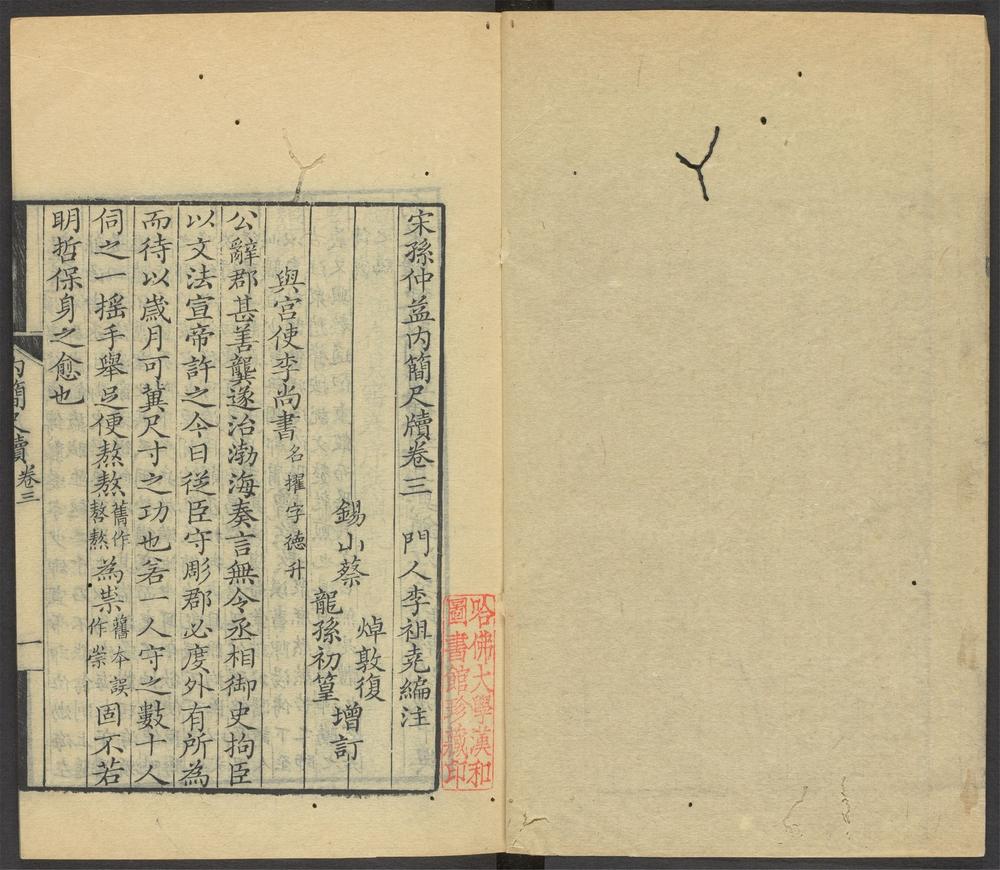 宋孫仲益內簡尺牘卷三　門人李祖堯編注
錫山蔡
焯敦復
龍孫初篁
增訂
與宫使李尚書名擢字德升
公辭郡甚善龔遂治渤海奏言無令丞相御史拘臣
以文法宣帝許之今日從臣守彫郡必度外有所為
而待以歲月可冀尺寸之功也若一人守之數十人
伺之一摇手舉足便熬熬舊作嗸熬為祟舊本誤作崇固不若
明哲保身之愈也
內簡尺牘
卷三
一
哈佛大學漢和
圖書館珍藏印